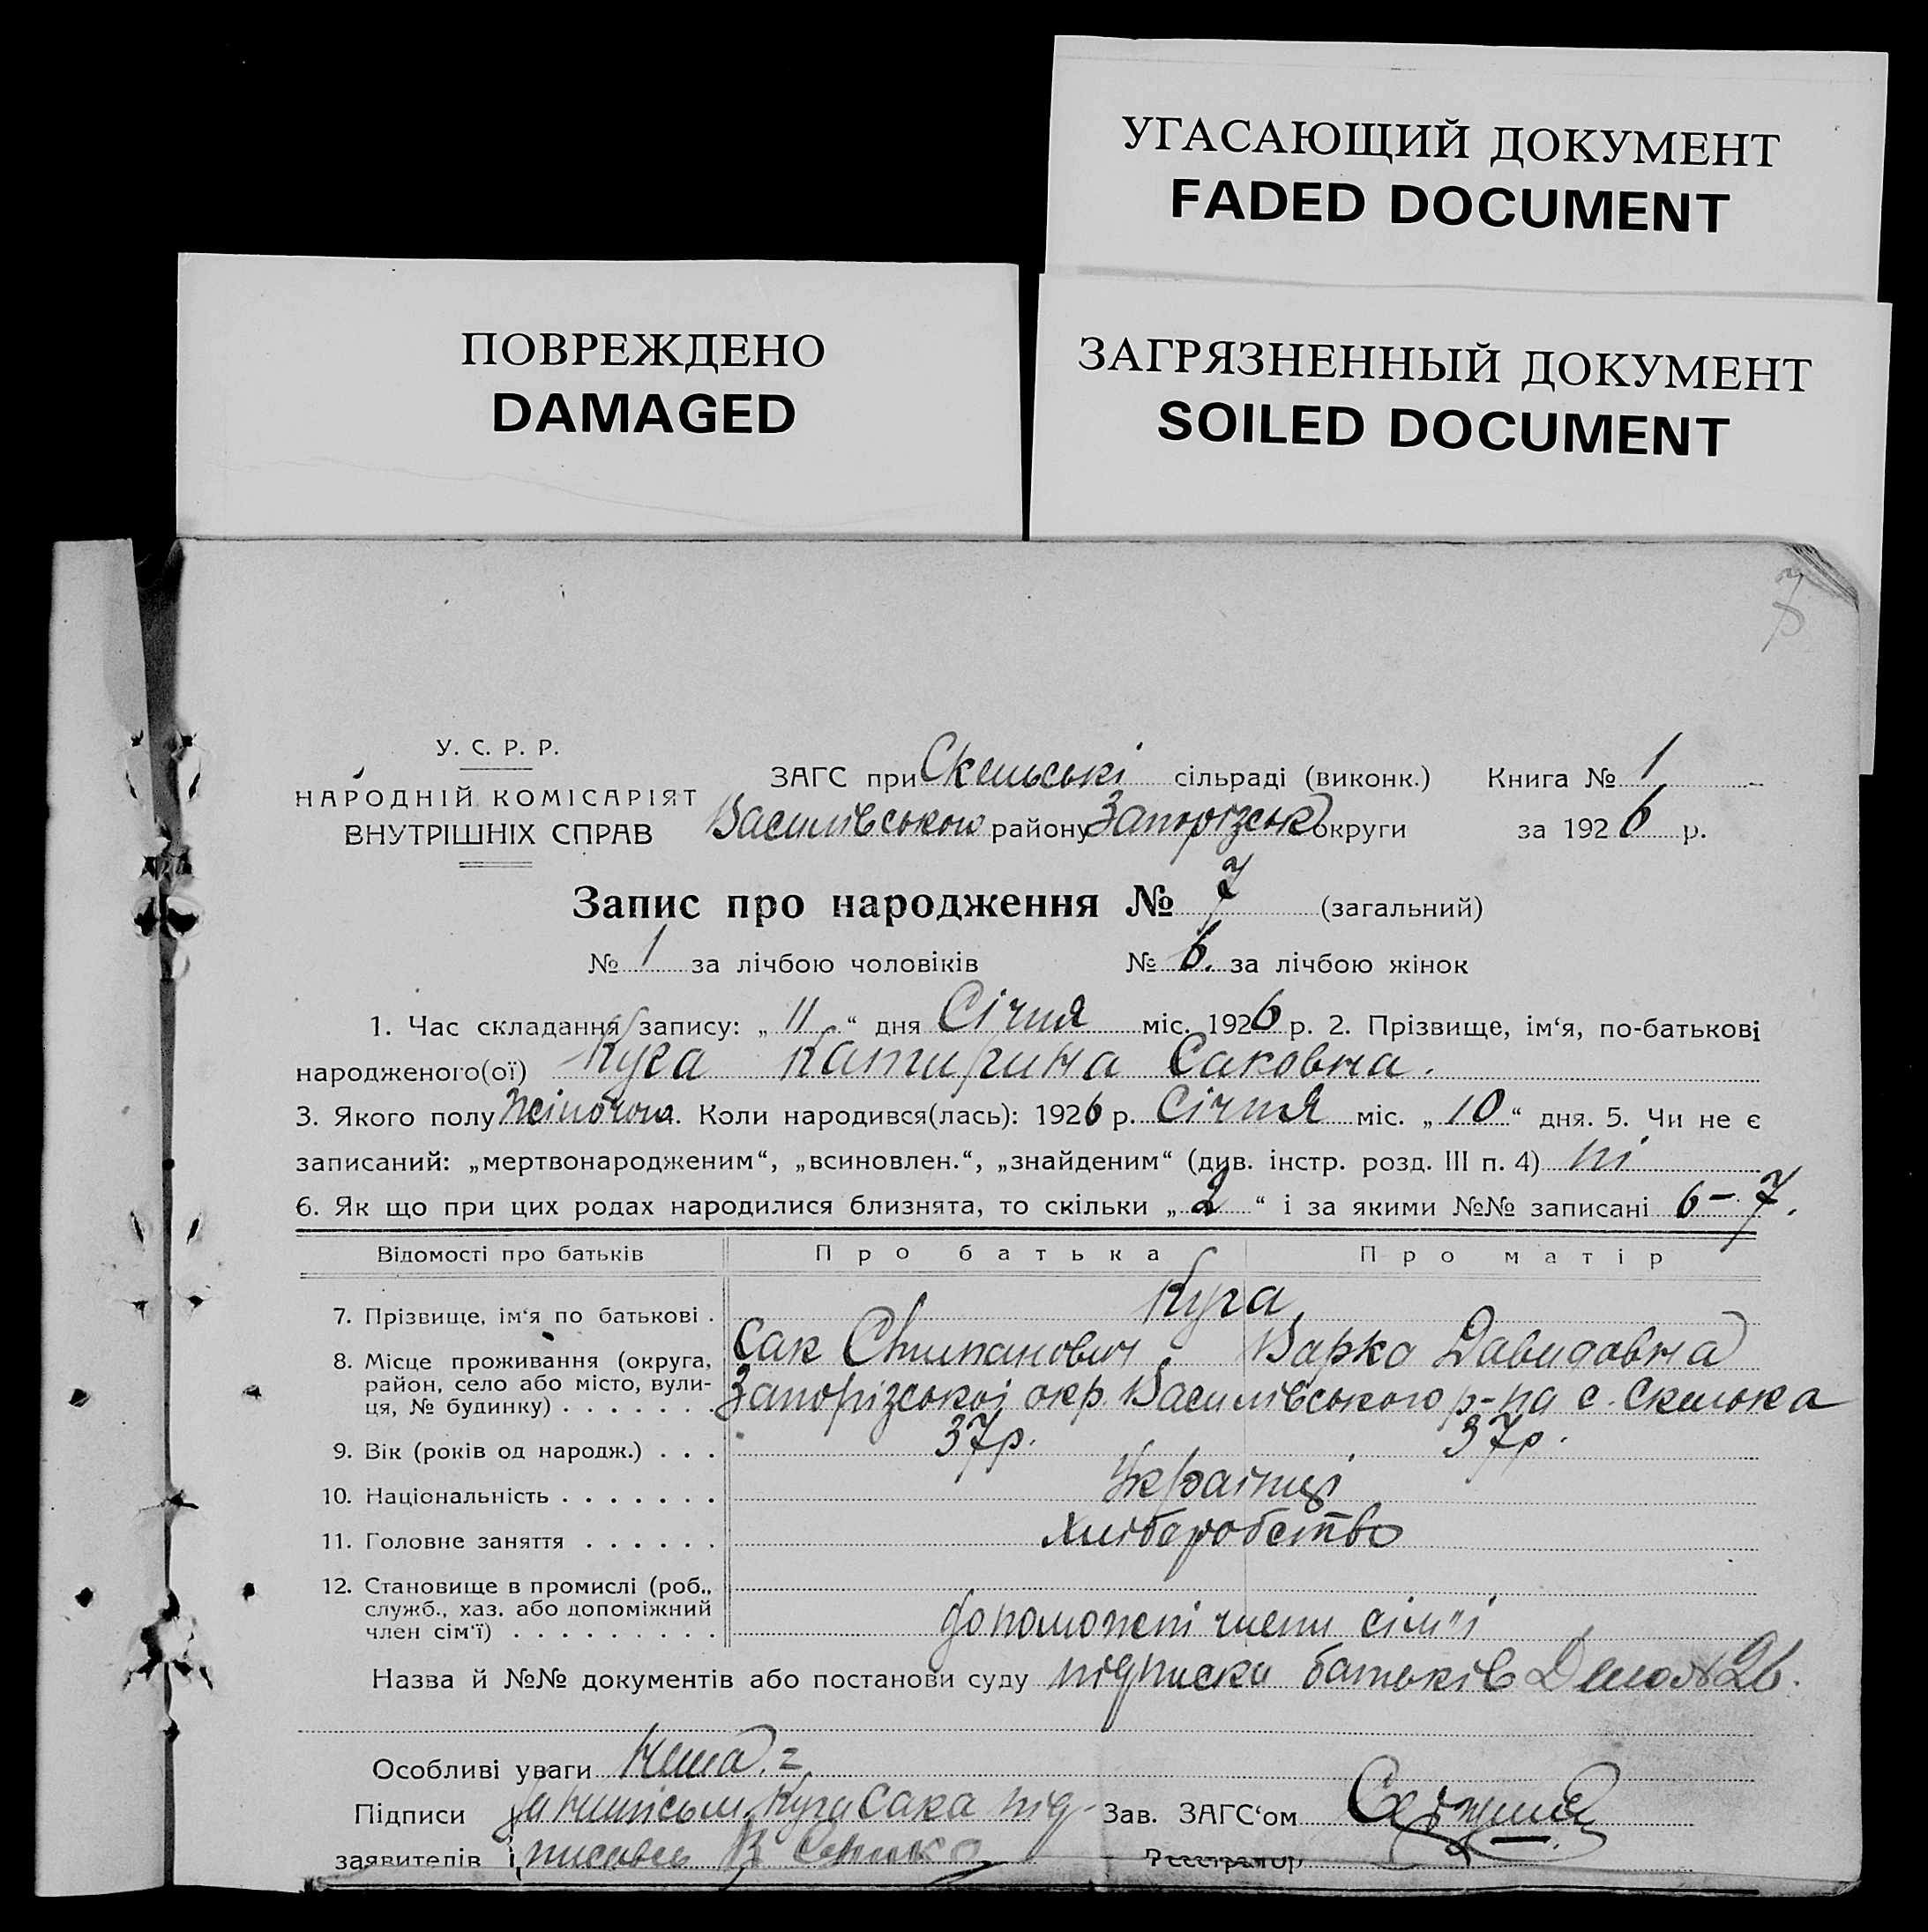 УГАСАЮЩИЙ ДОКУМЕНТ
FADED DOCUMENT
ПОВРЕЖДЕНО
DAMAGED
ЗАГРЯЗНЕННЫЙ ДОКУМЕНТ
SOILED DOCUMENT
У. С. Р. Р.
НАРОДНІЙ КОМІСАРІЯТ
ВНУТРІШНІХ СПРАВ
ЗАГС при Скельські сільраді (виконк.) Книга № 1
Василівського району Запорізськ округи за 1926 р.
Запис про народження № 7 (загальний)
№ 1 за лічбою чоловіків № 6. за лічбою жінок
1. Час складання запису: „ 11 “ дня Січня міс. 1926 р. 2. Прізвище, ім‘я, по-батькові
народженого(ої) Куга Катирина Саковна.
3. Якого полу жіночого 4. Коли народився(лась): 1926 р. Січня міс. „ 10 “ дня. 5. Чи не є
записаний: „мертвонародженим“, „всиновлен.“, „знайденим“ (див. інстр. розд. III п. 4) ні
6. Як що при цих родах народилися близнята, то скільки „ 2 “ і за якими №№ записані 6–7.
Відомості про батьків Про батька Про матір
7. Прізвище, ім‘я по батькові . Куга
Сак Стипанович Варка Давидовна
8. Місце проживання (округа,
район, село або місто, вули-
ця, № будинку) . . . . . . . Запорізської окр. Василівського р-на с. Скелька
9. Вік (років од народж.) . . . 37р. 37р.
10. Національність . . . . . . . Українці
11. Головне заняття . . . . . . хліборобство
12. Становище в промислі (роб.,
служб., хаз. або допоміжний
член сім‘ї) . . . . . . . . . допоможні члени сім"ї
Назва й №№ документів або постанови суду підписка батьків Дело № 26.
Особливі уваги Нема. =
Підписи За нипісьм. Куга Сака під-
заявителів писавсь В
Зав. ЗАГС‘ом
Реєстратор